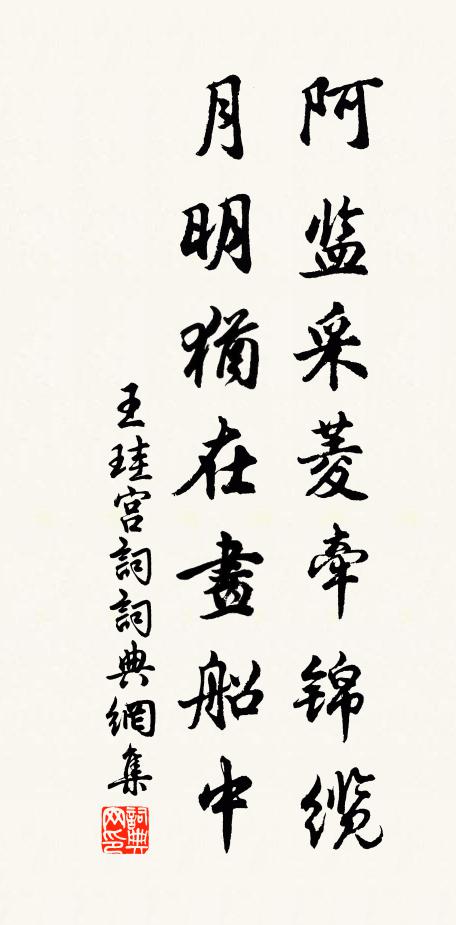 阿监采菱牵锦缆
月明猶在畫船中
王珪宫詞詞典網集
詞典网印